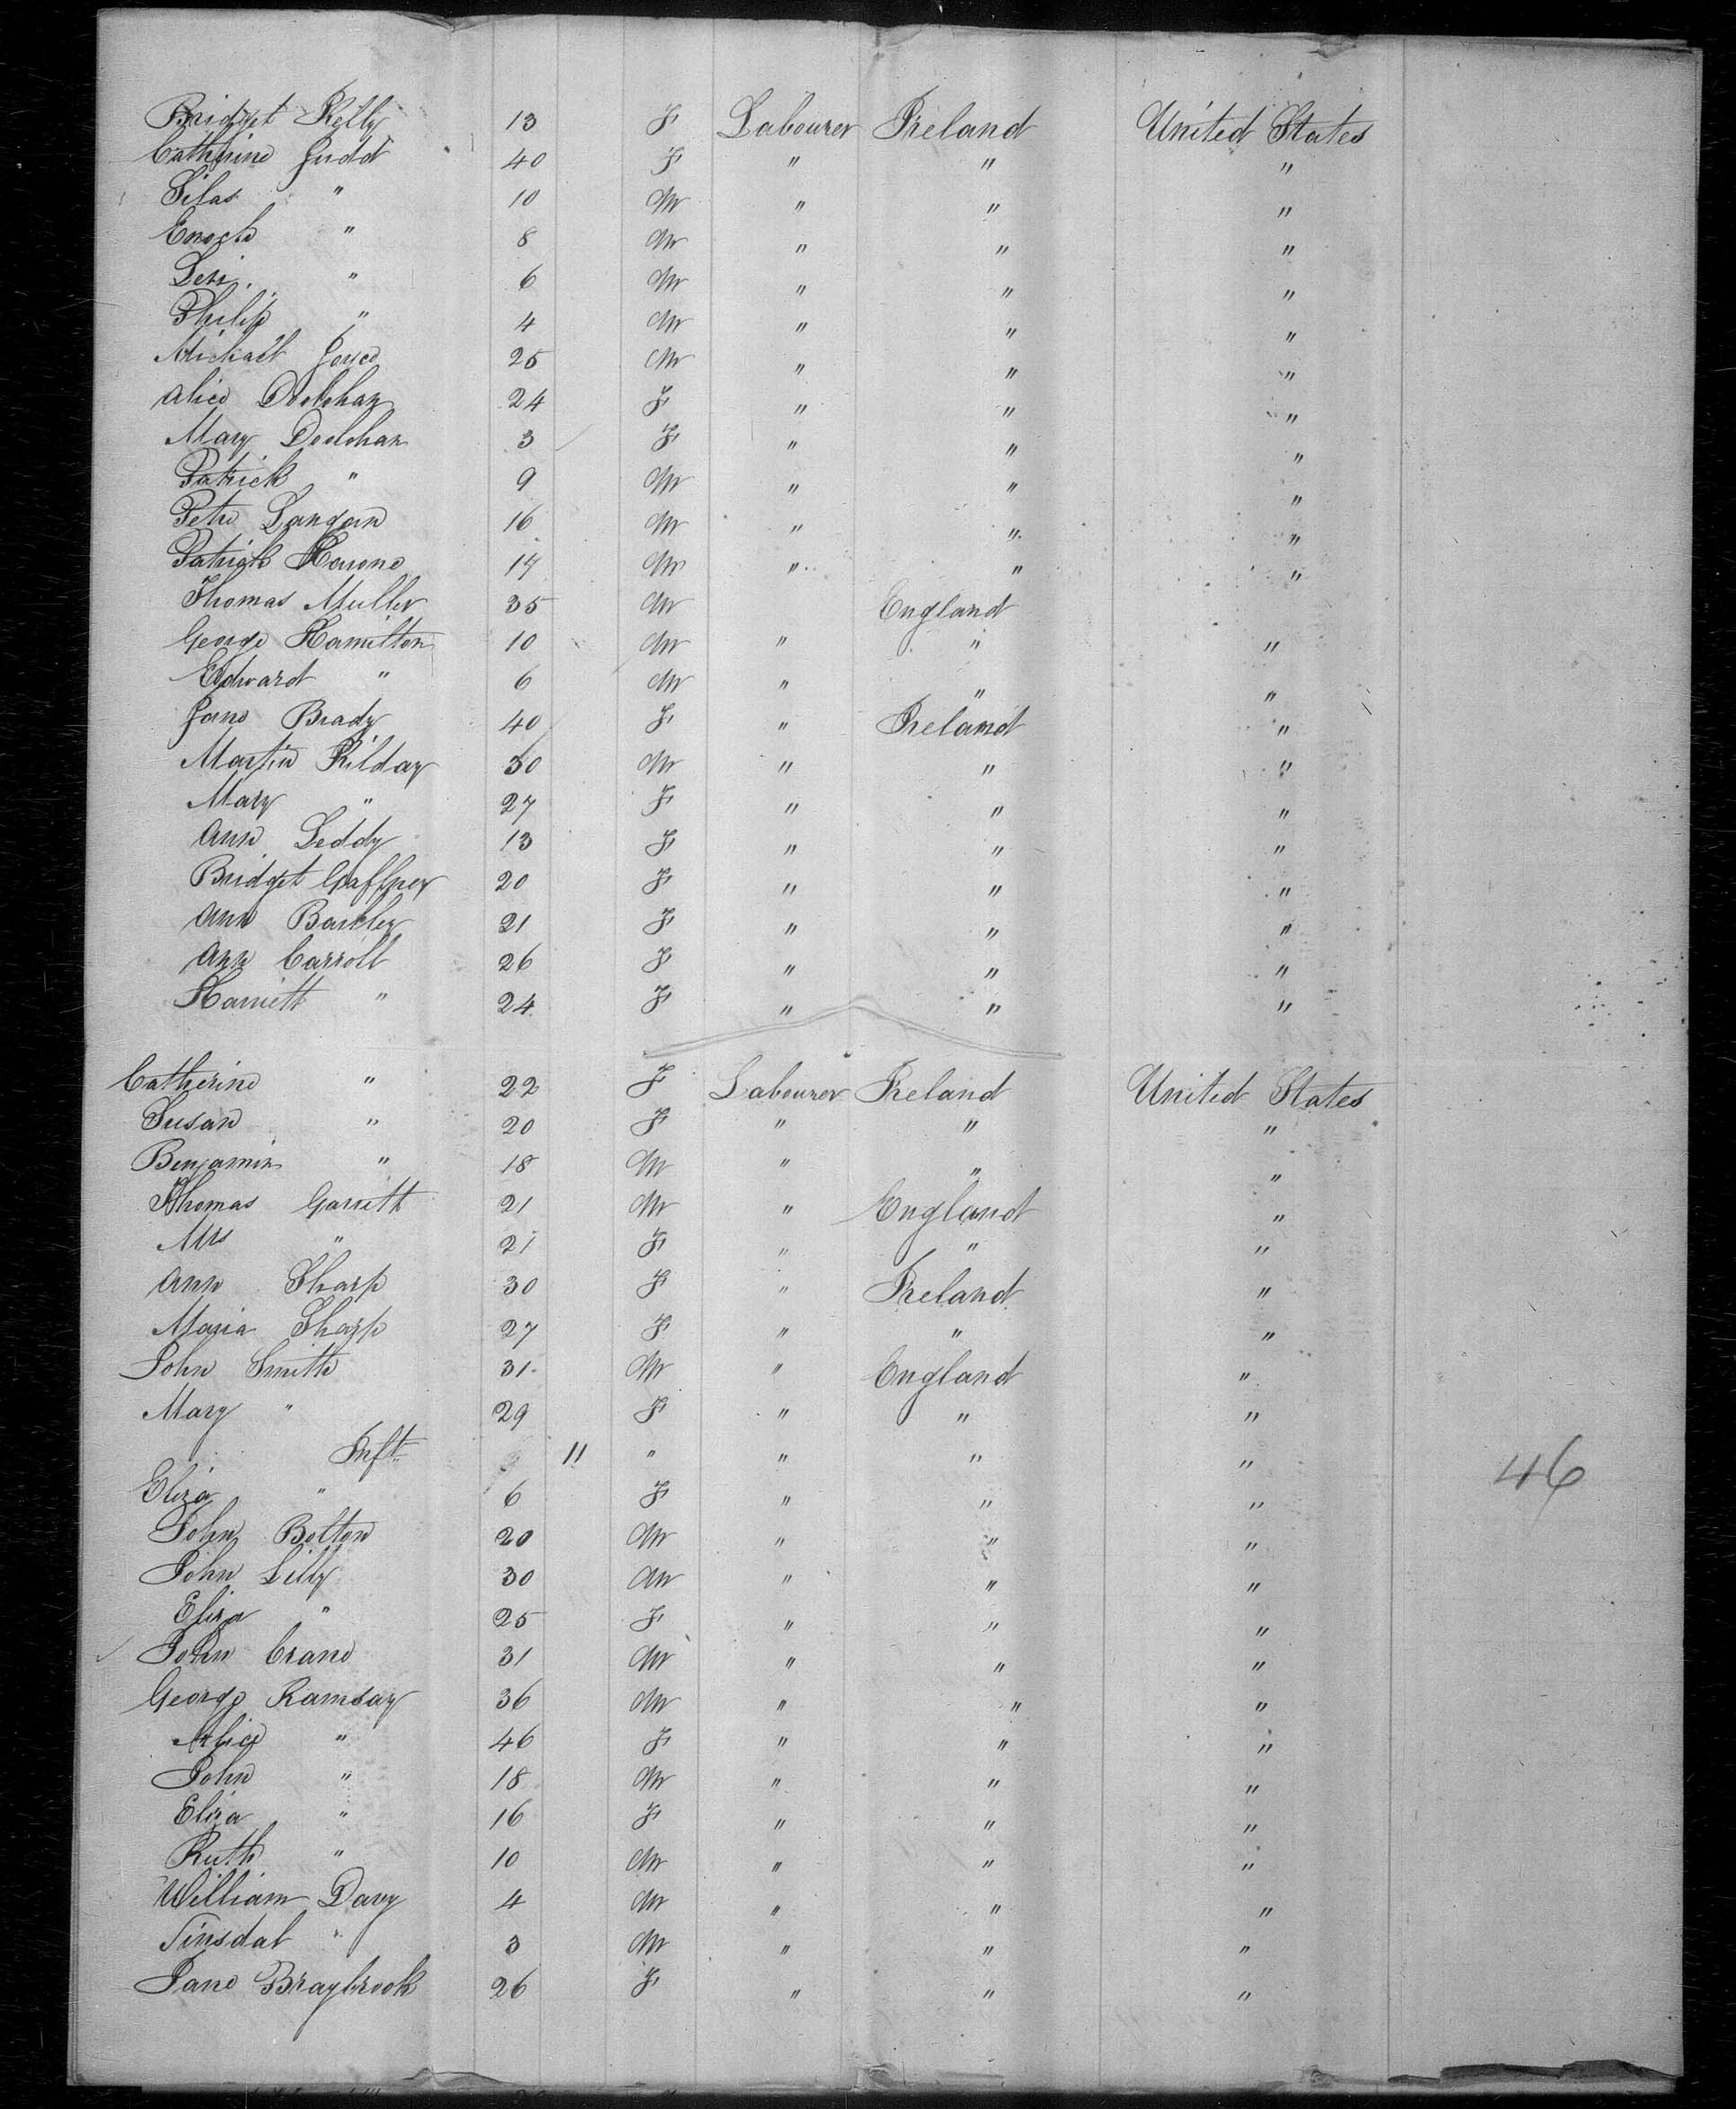 Bridget Kelly 13 F Labourer Ireland United States
Catherine Judd 40 F " " "
Silas " 10 M " " "
Enoch " 8 M " " "
Levi " 6 M " " "
Philip " 4 M " " "
Michael Joyce 25 M " " "
Alice Doolohan 24 F " " "
Mary Doolohan 3 F " " "
Patrick " 9 M " " "
Peter Langan 16 M " " "
Patrick 17 M " " "
Thomas Muller 35 M England
George Hamilton 10 M " " "
Edward " 6 M " " "
Jane Brady 40 F " Ireland "
Martin Kilday 30 M " " "
Mary " 27 F " " "
Ann Leddy 13 F " " "
Bridget Gaffney 20 F " " "
Ann Barkley 21 F " " "
Ann Carroll 26 F " " "
Harriett " 24 F " " "
Catherine " 22 F Labourer Ireland United States
Susan " 20 F " " "
Benjamin " 18 M " " "
Thomas Garrett 21 M " England "
Mrs " 21 F " " "
Ann Sharp 30 F " Ireland "
Maria Sharp 27 F " " "
John Smith 31 M " England "
Mary " 29 F " " "
Inft 11 " " " "
Eliza " 6 F " " "
John Bolton 20 M " " "
John Lilly 30 M " " "
Eliza " 25 F " " "
John Crane 31 M " " "
George Ramsay 36 M " " "
Alice " 46 F " " "
John " 18 M " " "
Eliza " 16 F " " "
Ruth " 10 M " " "
William Davy 4 M " " "
Tinsdal " 3 M " " "
Jane Braybrook 26 F " " "
46